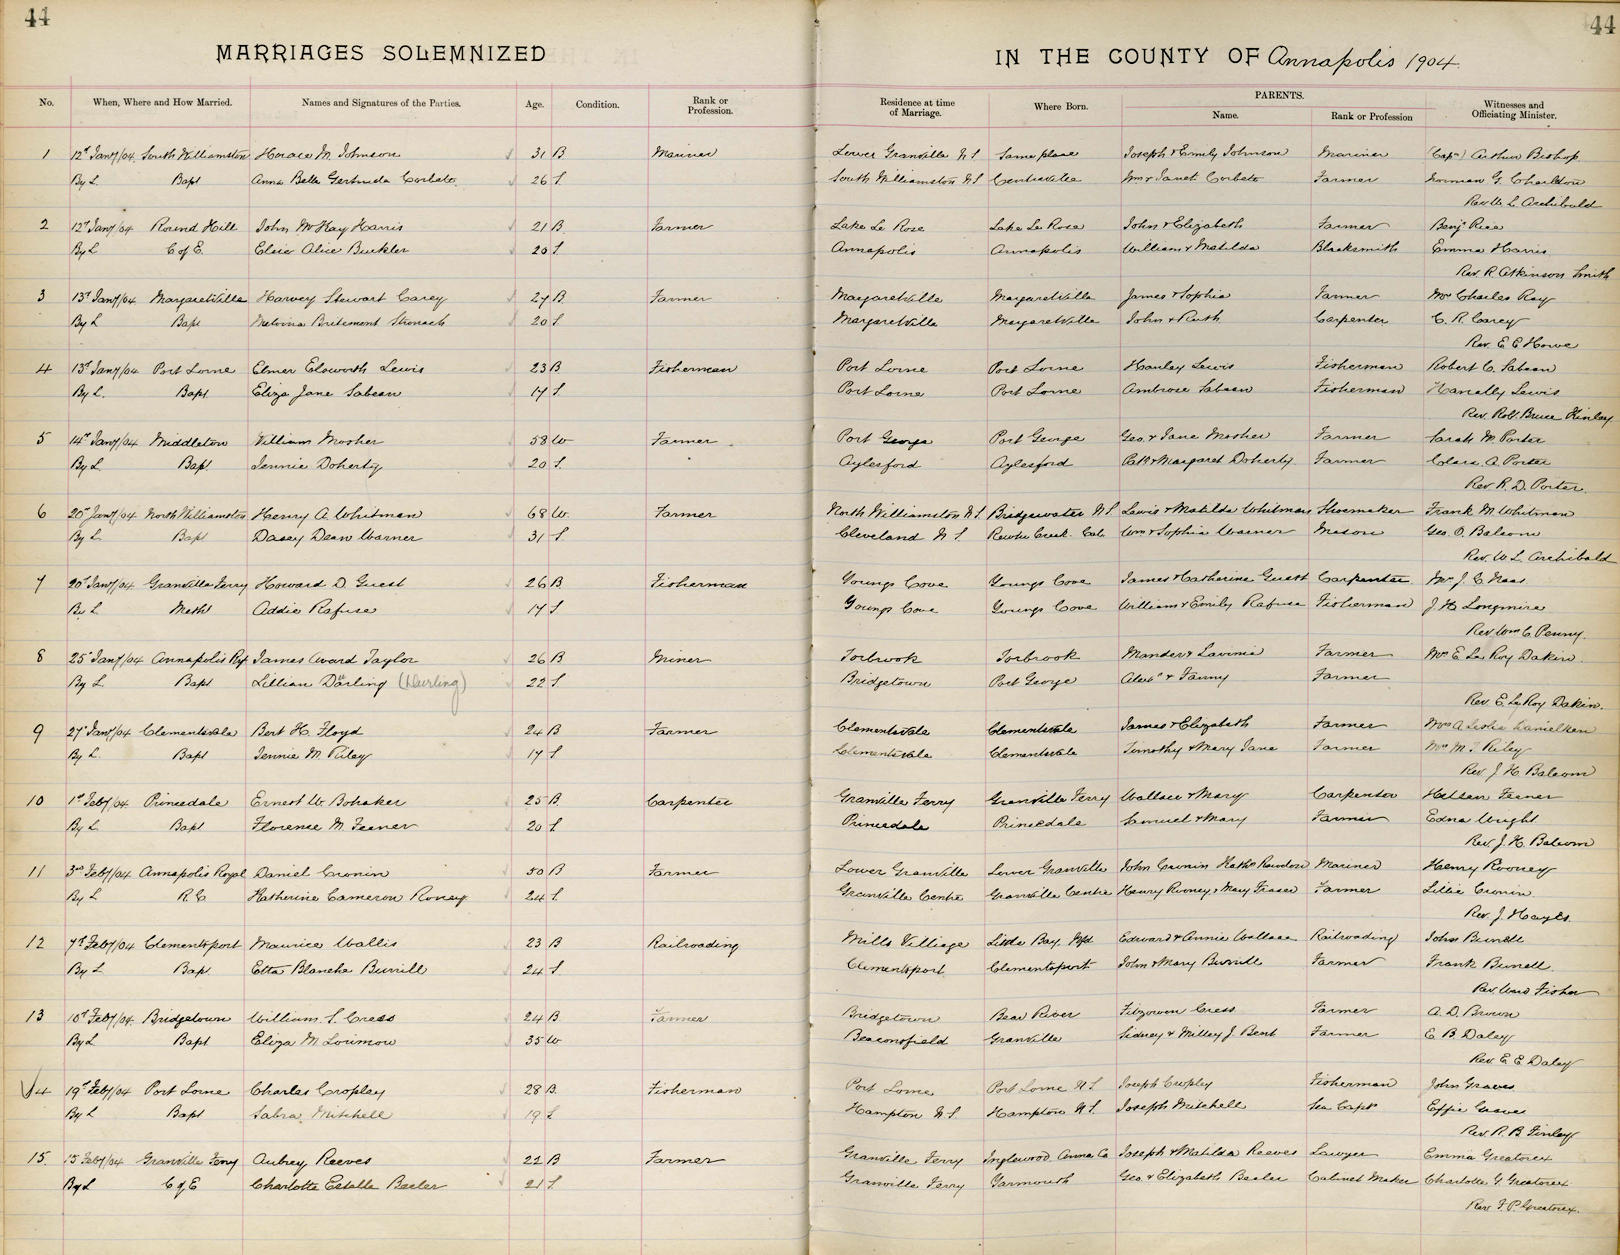 44
44
MARRIAGES SOLEMNIZED
IN THE COUNTY OF Annapolis 1904.
No. When, Where and How Married. Names and Signatures of the Parties. Age. Condition. Rank or Profession. Residence at time of Marriage. Where Born. PARENTS. Name. Rank or Profession Witnesses and Officiating Minister.
1 12th Jany/04 South Williamston Horace M. Johnson 31 B Mariner Lower Granville N S Same place Joseph & Emily Johnson Mariner (Capn) Arthur Bishop
By L Bapt Anna Bella Gertruda Corbett 26 S. South Williamston N S Centreville Wm & Janet Corbett Farmer Norman G. Charlton
Rev W. L. Archibald
2 12th Jany/04 Round Hill John McKay Harris 21 B Farmer Lake La Rose Lake La Rose John & Elizabeth Farmer Benj Rice
By L C of E. Elsie Alice Buckler 20 S. Annapolis Annapolis William & Matilda Blacksmith Emma Harris
Rev. R. Atkinson Smith
3 13th Jany/04 Margaretville Harvey Stewart Carey 27 B. Farmer Margaretville Margaretville James & Sophia Farmer Mrs Charles Ray
By L Bapt Melvina Stronach 20 S. Margaretville Margaretville John & Ruth Carpenter C. R. Carey
Rev. E E Howe
4 13th Jany/04 Port Lorne Elmer Elsworth Lewis 23 B Fisherman Port Lorne Port Lorne Hanley Lewis Fisherman Robert C. Sabean
By L. Bapt. Eliza Jane Sabean 17 S. Port Lorne Port Lorne Ambrose Sabean Fisherman Lewis
Rev. Robt. Bruce Kinlay
5 14th Jany/04 Middleton William Mosher 58 W Farmer Port George Port George Geo. & Jane Mosher Farmer Sarah M. Porter
By L Bapt Jennie Doherty 20 S. Aylesford Aylesford Patk & Margaret Doherty Farmer Clara A. Porter
Rev R. D. Porter.
6 20th Jany/04 North Williamston Henry A. Whitman 68 W. Farmer North Williamston N S. Bridgewater N S Lewis & Matilda Whitman Shoemaker Frank M Whitman
By L. Bapt Daisy Dean Warner 31 S. Cleveland N S. Creek. Wm & Sophia Warner Mason Geo. O. Balcom
Rev. W L Archibald
7 20th Jany/04 Granville Ferry Howard D Guest 26 B Fisherman Youngs Cove Youngs Cove James & Catherine Guest Carpenter. Mrs J. C Naas
By L Meth Addie Rafuse 17 S Youngs Cove Youngs Cove William & Emily Rafuse Fisherman J. H Longmire
Rev. Wm C. Penny.
8 25th Jany/04 Annapolis Ryl James Avard Taylor 26 B Miner Torbrook Torbrook Mander & Lavinia Farmer Mrs E La Roy Dakin.
By L. Bapt Lillian Darling (Durling) 22 S. Bridgetown Port George Alexr & Fanny Farmer
Rev E. La Roy Dakin.
9 27th Jany/04 Clementsvale Bert H. Floyd 24 B Farmer Clementsvale Clementsvale James & Elizabeth Farmer Mrs A Leslie Danielken
By L. Bapt Jennie M. Riley 17 S Clementsvale Clementsvale Timothy & Mary Jane Farmer Mrs M. J. Riley
Rev. J. H. Balcom
10 1st Feby/04 Princedale Ernest W. Bohaker 25 B. Carpenter Granville Ferry Granville Ferry Wallace & Mary Carpenter Feener
By L. Bapt Florence M. Feener 20 S Princedale Princedale Samuel & Mary Farmer Edna Wright
Rev J. H. Balcom
11 3rd Feby/04 Annapolis Royal Daniel Cronin 50 B Farmer Lower Granville Lower Granville John Cronin Kathn Rawdon Mariner Henry Rooney
By L R. C Katherine Cameron Roney 24 S. Granville Centre Granville Centre Henry Rooney & Mary Fraser Farmer Lillie Cronin
Rev. J. Hayes.
12 7th Feby/04 Clementsport Maurice Wallis 23 B Railroading Mills Villiage Little Bay Nfd Edward & Annie Wallace Railroading John Burrell
By L Bapt Etta Blanche Burrill 24 S Clementsport Clementsport John & Mary Burrill Farmer Frank Burrell
Rev. Ward Fisher
13 10th Feby/04. Bridgetown William S. Cress 24 B. Farmer Bridgetown Bear River Fitzowen Cress Farmer A. D. Brown
By L Bapt Eliza M Lorimow 35 W Beaconsfield Granville Sidney & Milley J Bent Farmer E B Daley
Rev. E E Daley
14 19th Feby/04 Port Lorne Charles Cropley 28 B. Fisherman Port Lorne Port Lorne N S Joseph Cropley Fisherman John Graves
By L Bapt Sabra Mitchell 19 S Hampton N S Hampton N S. Joseph Mitchell Sea Captn Effie Graves
Rev. R. B Finlay
15. 15 Feby/04 Granville Ferry Aubrey Reeves 22 B Farmer Granville Ferry Inglewood Anna Co Joseph & Matilda Reeves Lawyer Emma Greatorex
By L C of E Charlotte Estella Beeler 21 S. Granville Ferry Yarmouth Geo. & Elizabeth Beeler Cabinet Maker Charlotte G Greatorex
Rev. F. P. Greatorex.